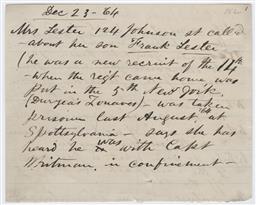 Dec 23 - 64
Mrs Lester 124 Johnson st call'd
about her son Frank Lester
(he was a new recruit of the 14th
- when the reg't came home was
put in the 5th New York.
(Duryea's Zouaves) - was taken
prisoner last August, at
Spottsylvania - says she has
heard he was with Capt
Whitman, in confinement -